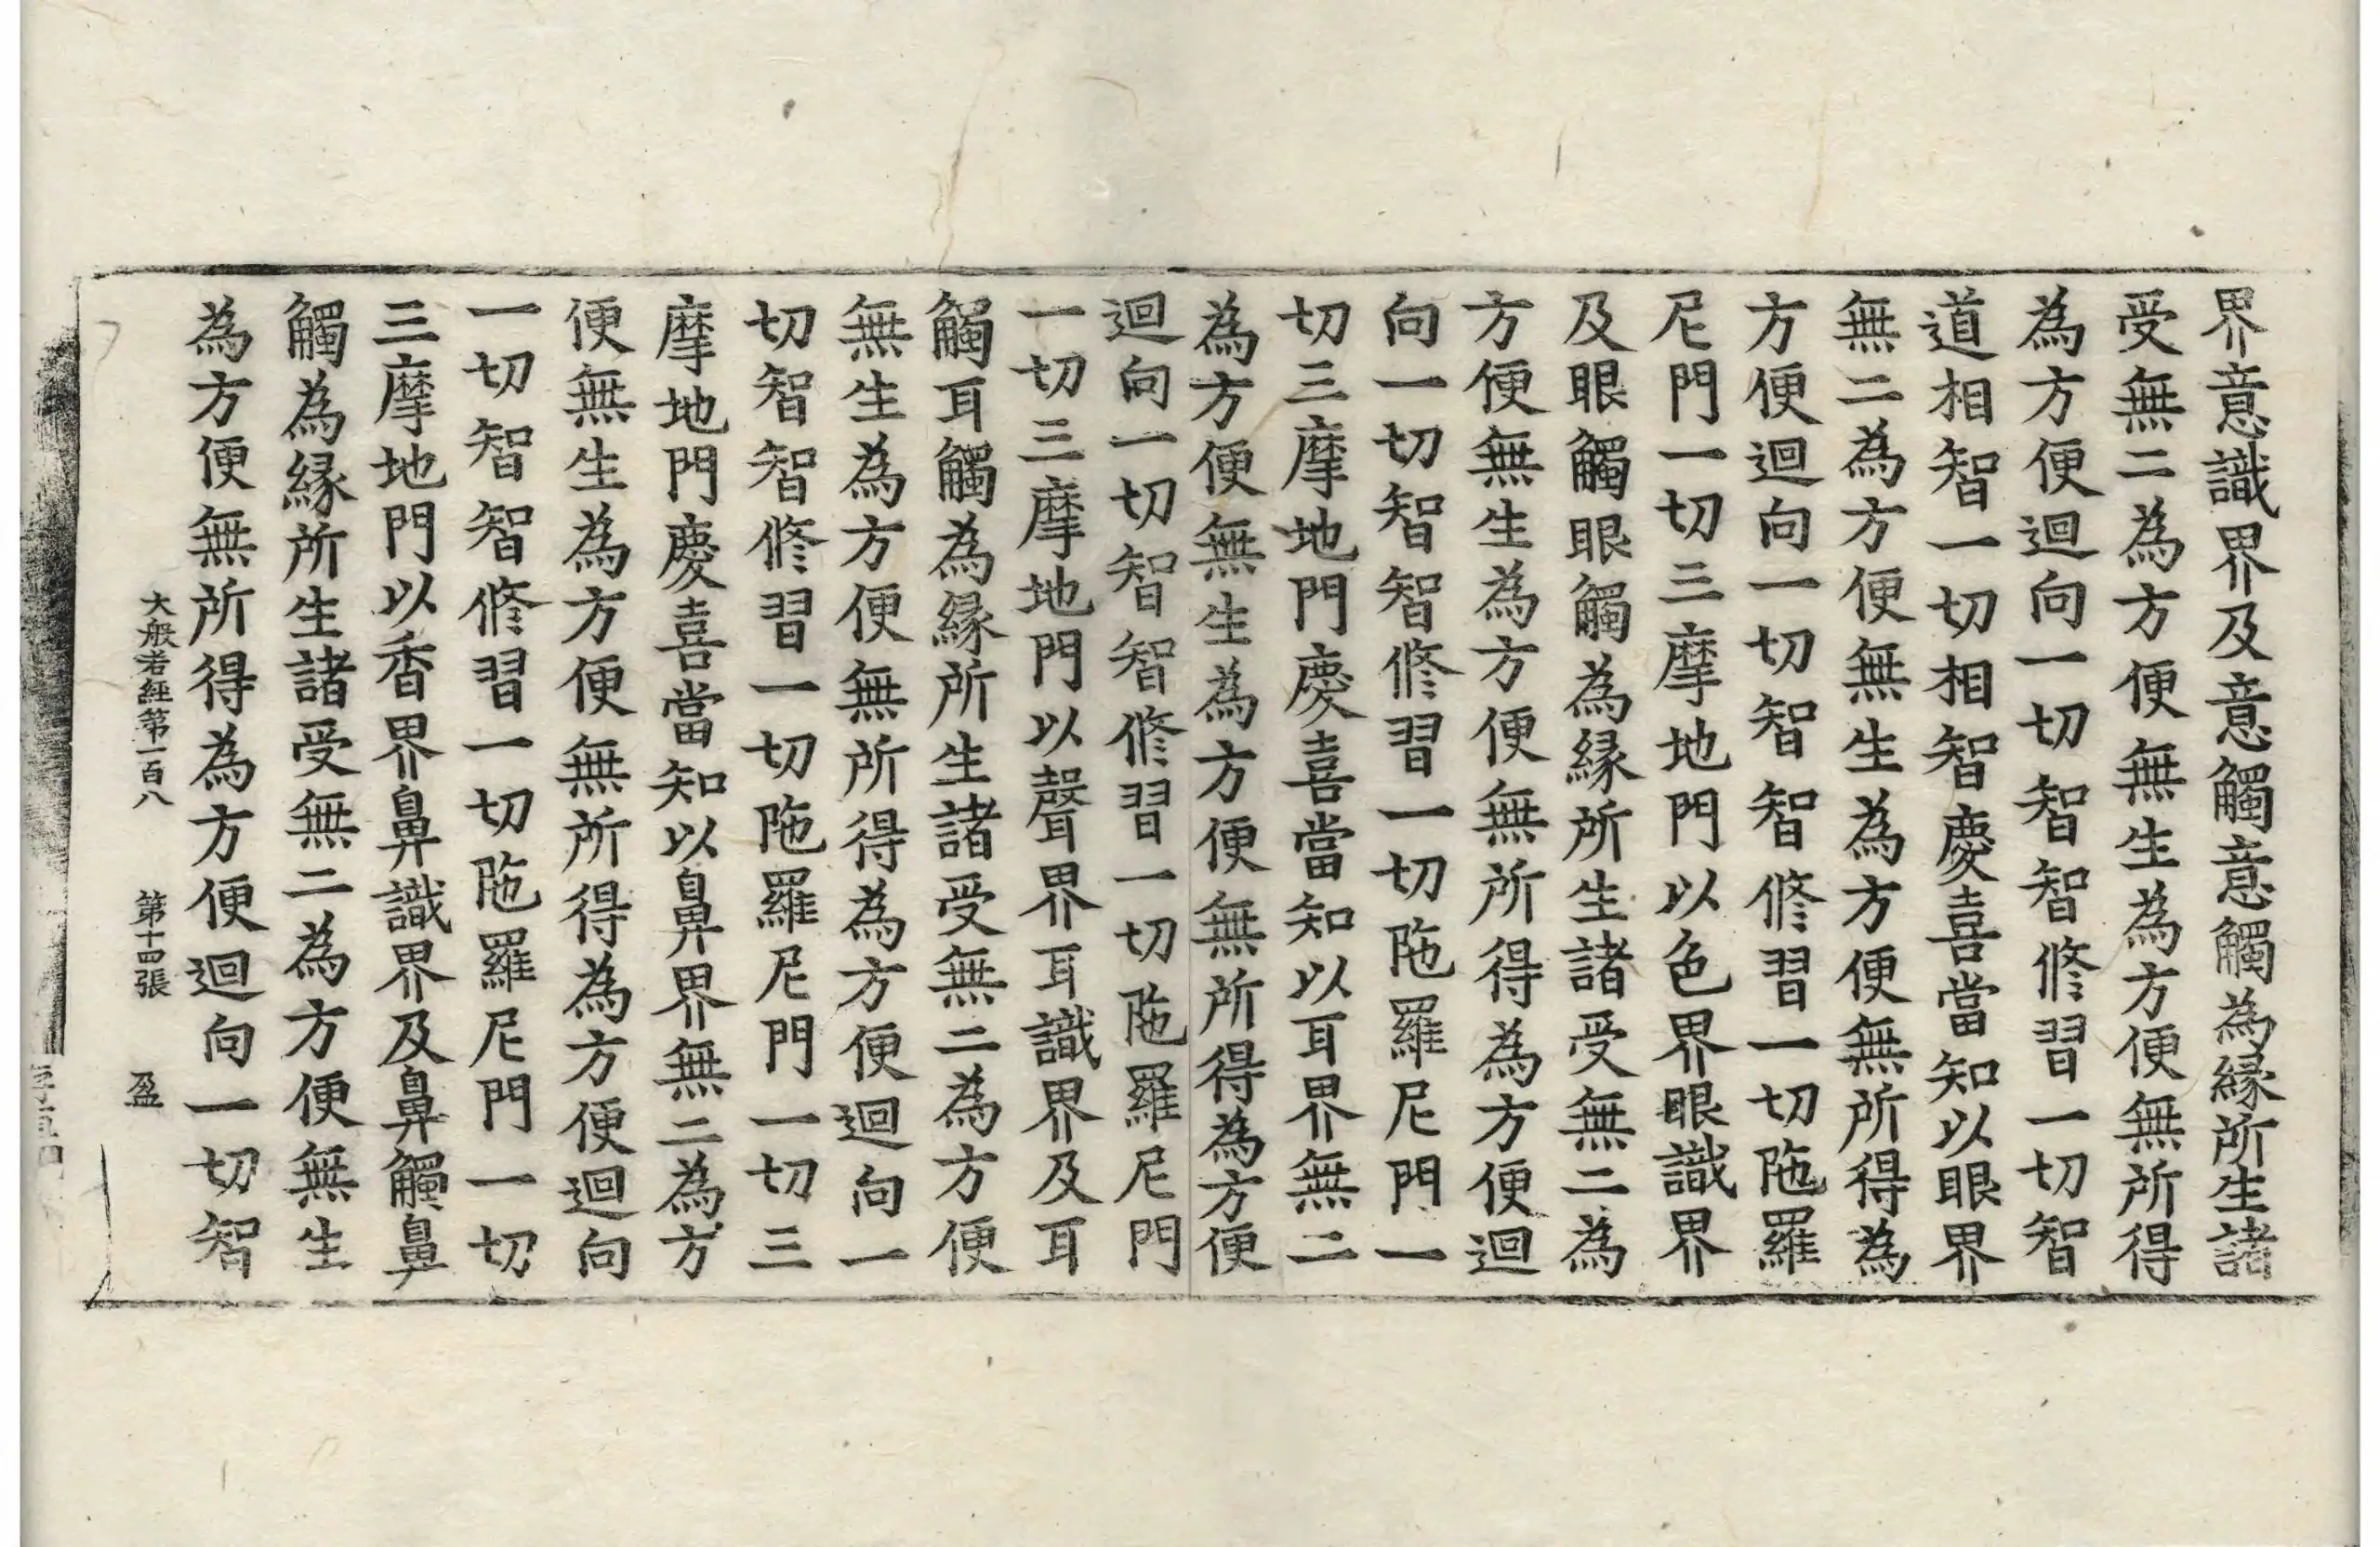 界意識界及意觸意觸為縁所生諸
受無二為方便無生為方便無所得
為方便迴向一切智智修習一切智
道相智一切相智慶喜當知以眼界
無二為方便無生為方便無所得為
方便迴向一切智智修習一切陁羅
尼門一切三摩地門以色界眼識界
及眼觸眼觸為縁所生諸受無二為
方便無生為方便無所得為方便迴
向一切智智修習一切陁羅尼門一
切三摩地門慶喜當知以耳界無二
為方便無生為方便無所得為方便
迴向一切智智修習一切陁羅尼門
一切三摩地門以聲界耳識界及耳
觸耳觸為縁所生諸受無二為方便
無生為方便無所得為方便迴向一
切智智修習一切陁羅尼門一切三
摩地門慶喜當知以鼻界無二為方
便無生為方便無所得為方便迴向
一切智智修習一切陁羅尼門一切
三摩地門以香界鼻識界及鼻觸鼻
觸為縁所生諸受無二為方便無生
為方便無所得為方便迴向一切智
大般若經第一百八 第十四張 盈